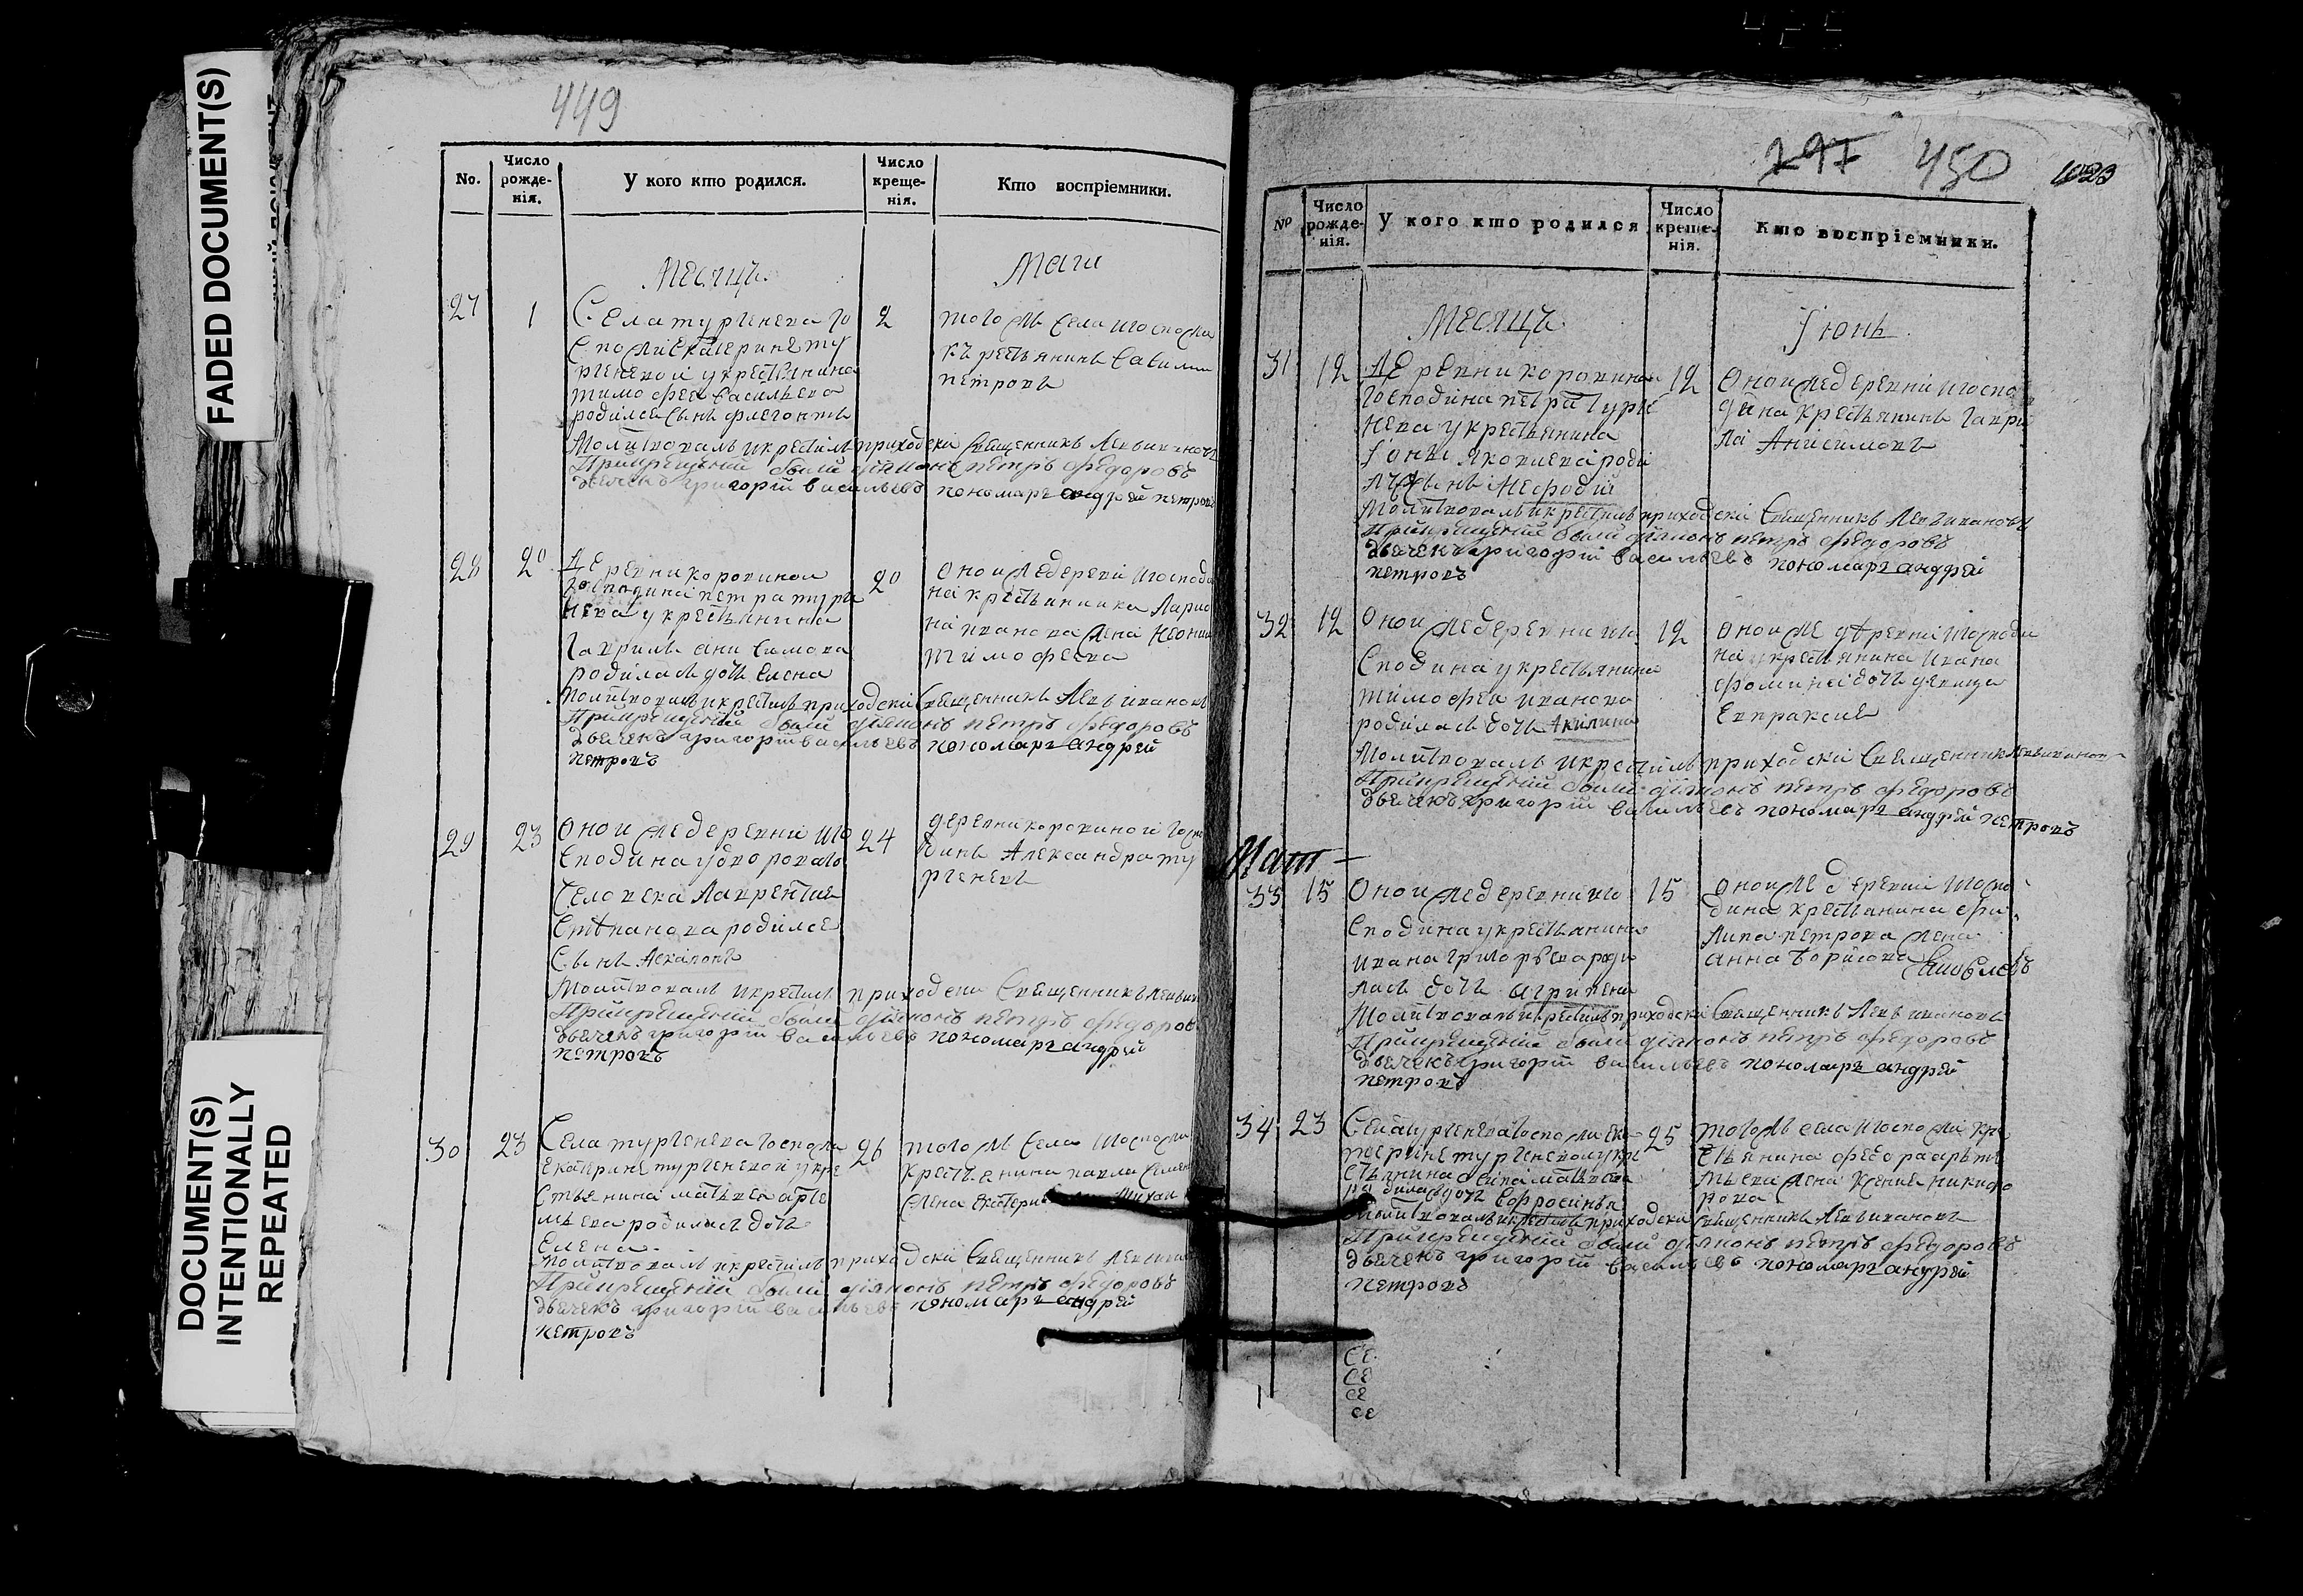 FADED DOCUMENT(S)
DOCUMENT(S)
INTENTIONALLY
REPEATED
449
No.
Число рожденія.
У кого кто родился.
Число крещенія.
Кто воспріемники.
Месяцъ
Маии
27
1
Села тургенева го
спожи екатерине ту
ргеневой укрестьянина
тимофея васильева
родился сынъ флегонтъ
2
того жъ села и госпожи
крестьянинъ
петровъ
Молитвовалъ и крестилъ приходски священникъ Левъ ивановъ
При крещении были диаконъ петръ федоровъ
дьячекъ григорий васильевъ пономарь андрей петровъ
28
20
Деревни коровиной
господина петра турге
нева у крестьянина
гаврилы анисимова
родилась дочь елена
20
оной же деревни и господи
на крестьянина Ларио
на иванова жена
тимофеева
Молитвовалъ и крестилъ приходски священникъ Левъ ивановъ
При крещении были диаконъ петръ федоровъ
дьячекъ григорий васильевъ пономарь андрей
петровъ
29
23
Оной же деревни и го
сподина у двороваго
человека Лаврентия
степанова родился
сынъ
24
деревни коровиной госпо
динъ Александра ту
ргеневъ
Молитвовалъ и крестилъ приходски священникъ Левъ
При крещении были диаконъ петръ федоров
дьячекъ григорий васильевъ пономарь андрей
петровъ
30
23
Села тургенева госпожи
екатерине тургеневой у кре
стьянина матвея арте
мьева родилась дочь
Елена
26
того жъ села и госпожи
крестьянина павла
жена
Молитвовалъ и крестилъ приходски священникъ Левъ
При крещении были диаконъ петръ федоровъ
дьячекъ григорий васильевъ пономарь андрей
петровъ
297 450
No
Число рожденія.
У кого кто родился
Число крещенія.
Кто воспріемники.
Месяцъ
Іюнь
31
12
Деревни коровиной
господина петра турге
нева у крестьянина
Іоны яковлева роди
лся сынъ Мефодій
12
Оной же деревни и госпо
дина крестьянинъ гаври
ла Анисимовъ
Молитвовалъ и крестилъ приходски священникъ Левъ ивановъ
При крещении были диаконъ петръ федоровъ
дьячекъ григорий васильевъ пономарь андрей
петровъ
32
12
Оной же деревни и го
сподина у крестьянина
тимофея иванова
родилась дочь Акилина
12
Оной же деревни и господи
на у крестьянина ивана
фомина дочь девица
Евпраксия
Молитвовалъ и крестилъ приходски священникъ Левъ ивановъ
При крещении были диаконъ петръ федоровъ
дьячекъ григорий васильевъ пономарь андрей петровъ
33
15
Оной же деревни и го
сподина у крестьянина
ивана григорьева роди
лась дочь агрипена
15
Оной же деревни и госпо
дина крестьянина фи
липа петрова жена
анна борисова
Молитвовалъ и крестилъ приходски священникъ Левъ ивановъ
При крещении были диаконъ петръ федоровъ
дьячекъ григорий васильевъ пономарь андрей
петровъ
34
23
Села тургенева госпожи ека
терине тургеневой у кре
стьянина осипа матвеева
родилась дочь Ефросинья
25
того жъ села и госпожи кре
стьянина федора арте
мьева жена Ксения никифо
рова
Молитвовалъ и крестилъ приходски священникъ Левъ ивановъ
При крещении были диаконъ петръ федоровъ
дьячекъ григорий васильевъ пономарь андрей
петровъ
се
се
се
се